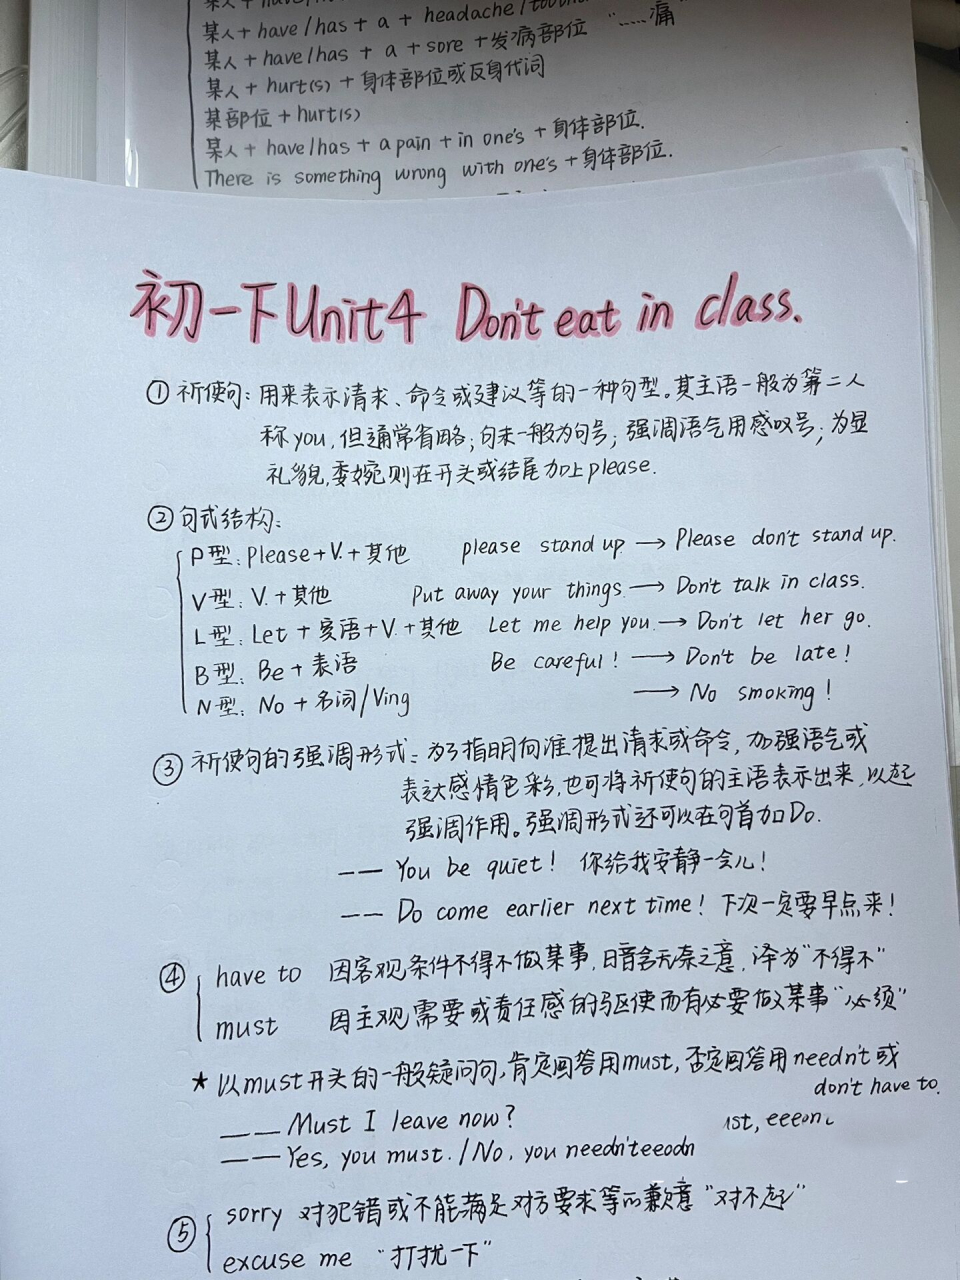 某人 + have/has + a + headache/
某人 + have/has + a + sore + 发病部位 “……痛”
某人 + hurt(s) + 身体部位或反身代词
某部位 + hurt(s)
某人 + have/has + a pain + in one's + 身体部位.
There is something wrong with one's + 身体部位.
初一下Unit4 Don't eat in class.
① 祈使句: 用来表示请求、命令或建议等的一种句型。其主语一般为第二人
称you, 但通常省略; 句末一般为句号; 强调语气用感叹号; 为显
礼貌,委婉则在开头或结尾加上please.
② 句式结构:
P型: Please+V.+其他 please stand up → Please don't stand up.
V型: V.+其他 Put away your things. → Don't talk in class.
L型: Let + 宾语+V.+其他 Let me help you. → Don't let her go.
B型: Be + 表语 Be careful! → Don't be late!
N型: No + 名词/Ving → No smoking!
③ 祈使句的强调形式: 为了指明向谁提出请求或命令, 加强语气或
表达感情色彩,也可将祈使句的主语表示出来,以起
强调作用。强调形式还可以在句首加Do.
—— You be quiet! 你给我安静一会儿!
—— Do come earlier next time! 下次一定要早点来!
④ have to 因客观条件不得不做某事,暗含无奈之意,译为“不得不”
must 因主观需要或责任感的驱使而有必要做某事“必须”
★ 以must开头的一般疑问句,肯定回答用must, 否定回答用needn't或
don't have to.
—— Must I leave now?
—— Yes, you must. / No, you needn'teeodn
⑤ sorry 对犯错或不能满足对方要求等的歉意“对不起”
excuse me “打扰一下”